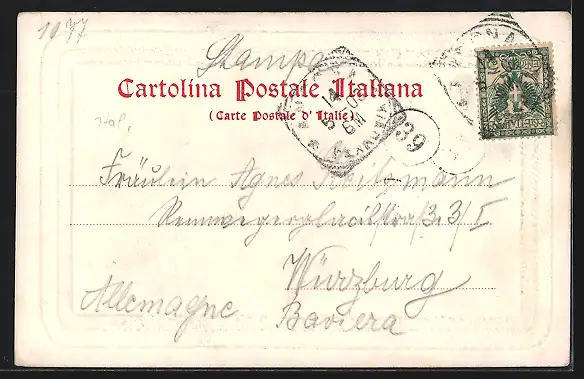 1077
Stampa
Cartolina Postale Italiana
(Carte Postale d' Italie)
Ital.
39
Fräulein Agnes
Rennwegerglacisstra/3.3/I
Würzburg
Allemagne
Baviera